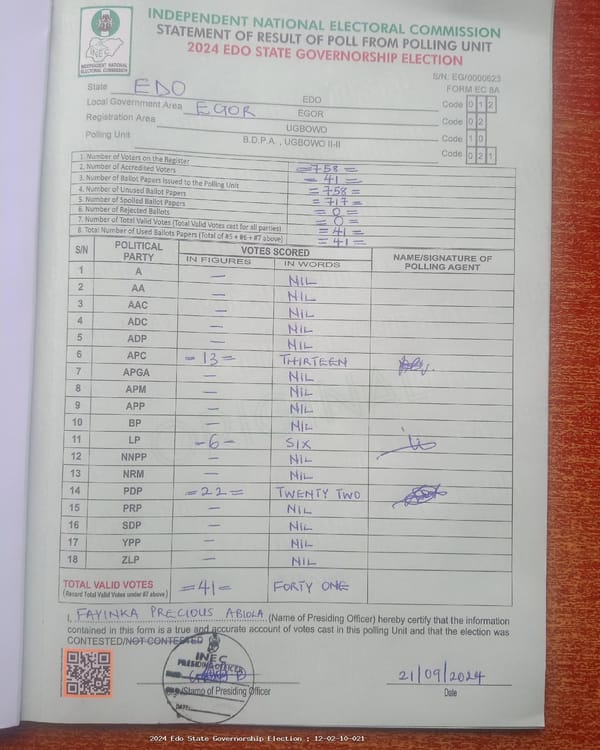 INDEPENDENT NATIONAL ELECTORAL COMMISSION
STATEMENT OF RESULT OF POLL FROM POLLING UNIT
2024 EDO STATE GOVERNORSHIP ELECTION
INEC
INDEPENDENT NATIONAL
ELECTORAL COMMISSION
S/N: EG/0000623
FORM EC 8A
State EDO EDO Code 0 1 2
Local Government Area EGOR EGOR Code 0 2
Registration Area UGBOWO Code 1 0
Polling Unit B.D.P.A., UGBOWO II-II Code 0 2 1
1. Number of Voters on the Register =758=
2. Number of Accredited Voters =41=
3. Number of Ballot Papers Issued to the Polling Unit =758=
4. Number of Unused Ballot Papers =717=
5. Number of Spoiled Ballot Papers =0=
6. Number of Rejected Ballots =0=
7. Number of Total Valid Votes (Total Valid Votes cast for all parties) =41=
8. Total Number of Used Ballots Papers (Total of #5 + #6 + #7 above) =41=
S/N POLITICAL PARTY VOTES SCORED NAME/SIGNATURE OF POLLING AGENT
IN FIGURES IN WORDS
1 A — NIL
2 AA — NIL
3 AAC — NIL
4 ADC — NIL
5 ADP — NIL
6 APC =13= THIRTEEN
7 APGA — NIL
8 APM — NIL
9 APP — NIL
10 BP — NIL
11 LP -6- SIX
12 NNPP — NIL
13 NRM — NIL
14 PDP =22= TWENTY TWO
15 PRP — NIL
16 SDP — NIL
17 YPP — NIL
18 ZLP — NIL
TOTAL VALID VOTES =41= FORTY ONE
(Record Total Valid Votes under #7 above)
I, FAYINKA PRECIOUS ABIOLA (Name of Presiding Officer) hereby certify that the information
contained in this form is a true and accurate account of votes cast in this polling Unit and that the election was
CONTESTED/NOT CONTESTED
INEC
PRESIDING OFFICER
21/09/2024
/Stamp of Presiding Officer Date
DATE:
2024 Edo State Governorship Election : 12-02-10-021